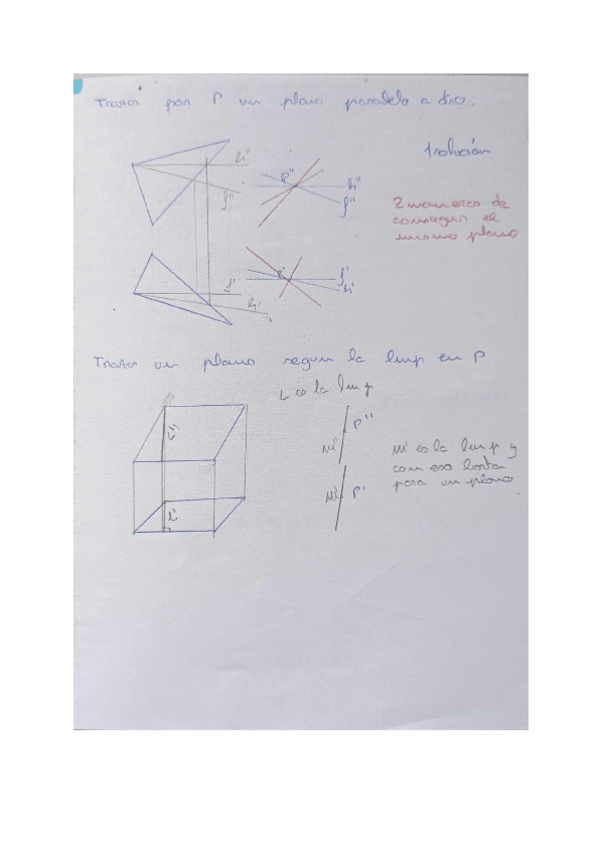 Trazar por P un plano paralelo a otro.
1 solución
h''
f''
P''
h''
f''
2 maneras de
conseguir el
mismo plano
f'
h'
P'
f'
h'
Trazar un plano según la lmp en P
L es la lmp
L''
P''
M''
M' es la lmp y
con eso basta
para un plano
L'
M'
P'